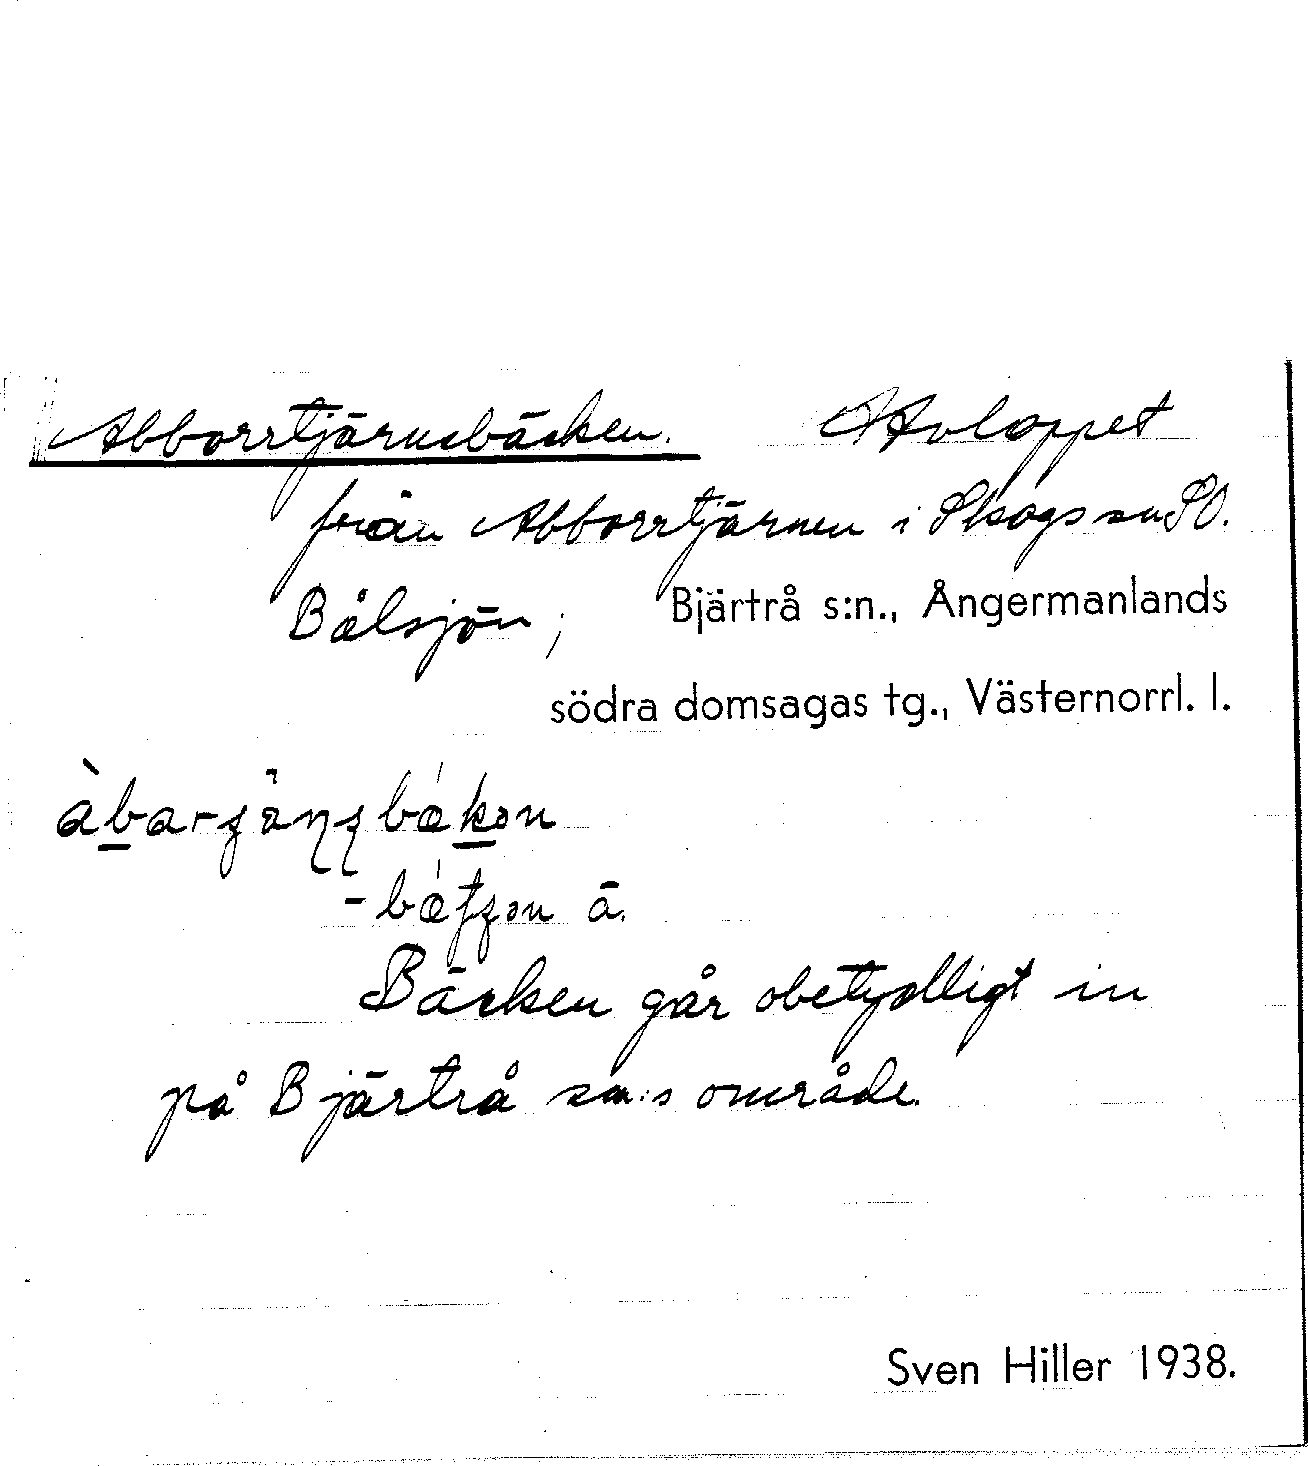 Abborrtjärnsbäcken. Avloppet
från Abborrtjärnen i Skogs sn SO.
Bålsjön; Bjärtrå s:n., Ångermanlands
södra domsagas tg., Västernorrl. l.
-bæ̀tʃən ä.
Bäcken går obetydligt in
på Bjärtrå sn:s område.
Sven Hiller 1938.